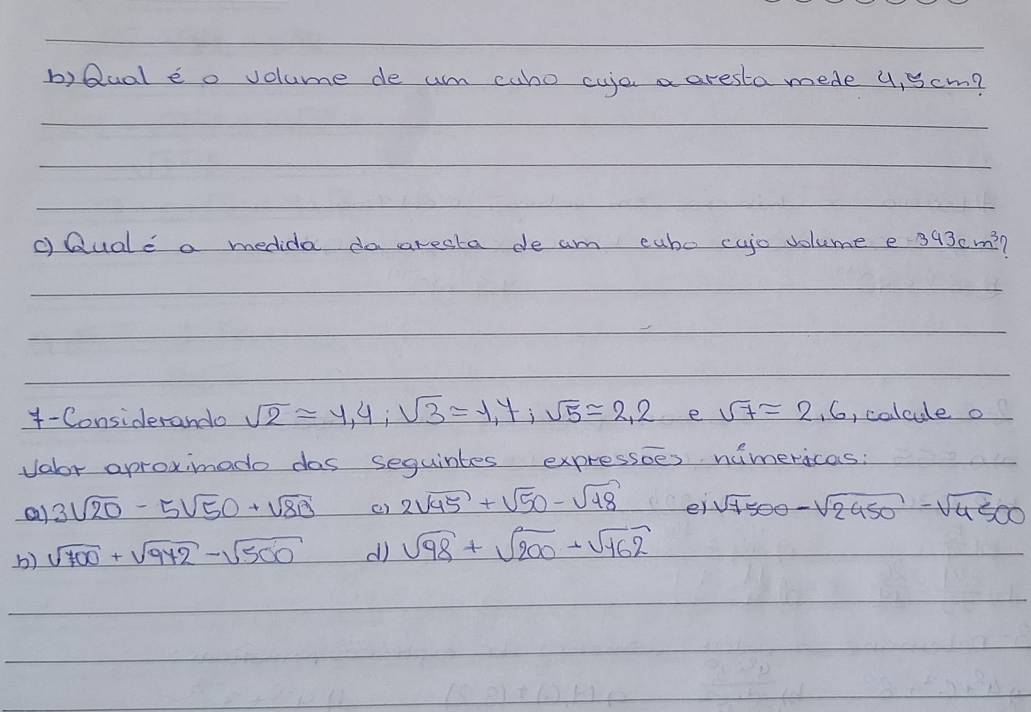 b) Qual é o volume de um cubo cuja a aresta mede 4,5 cm?
c) Qual é a medida da aresta de um cubo cujo volume e 343cm³?
7-Considerando √2 ≃ 1,4; √3 ≃ 1,7; √5 ≃ 2,2 e √7 ≃ 2,6, calcule o
valor aproximado das seguintes expressões númericas:
a) 3√20 - 5√50 + √80 c) 2√45 + √50 - √18 e) √7500 - √2450 - √4500
b) √700 + √972 - √500 d) √98 + √200 + √162